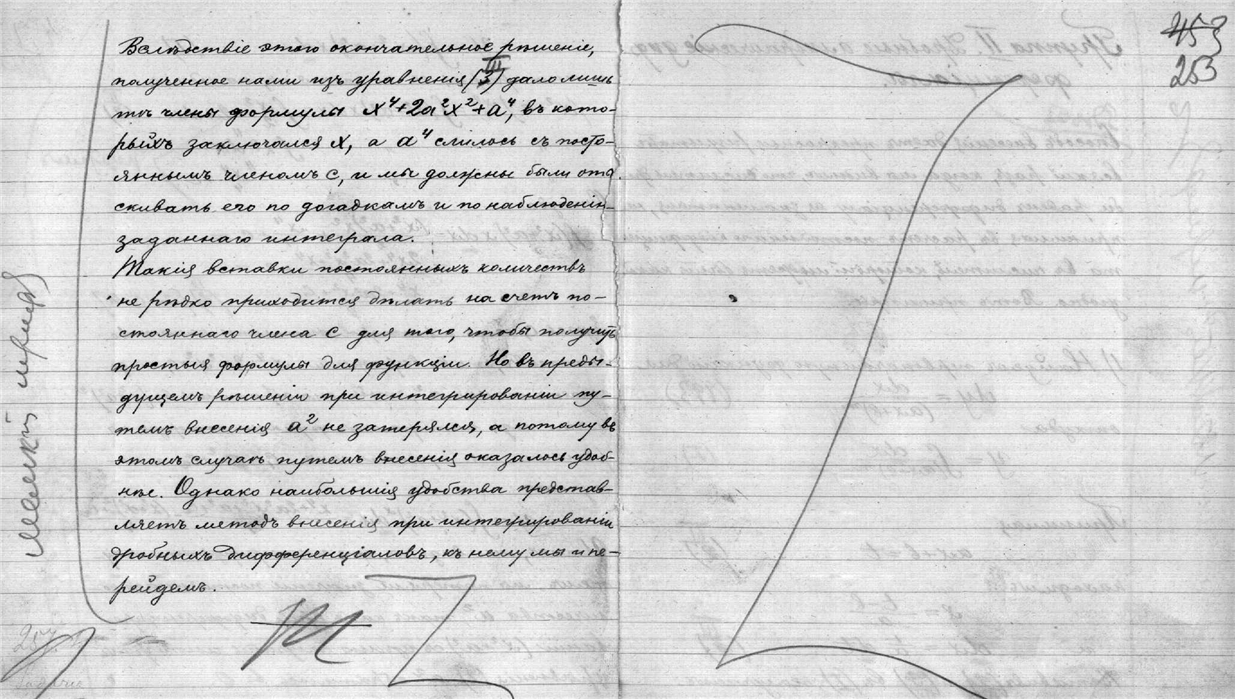 Вслѣдствіе этого окончательное рѣшеніе,
полученное нами изъ уравненія (III/3) дало лишь
тѣ члены формулы x⁴+2a²x²+a⁴, въ кото-
рыхъ заключался x, а a⁴ слилось съ посто-
яннымъ членомъ c, и мы должны были оты
скивать его по догадкамъ и по наблюденію
заданнаго интеграла.
Такія вставки постоянныхъ количествъ
не рѣдко приходится дѣлать на счетъ по-
стояннаго члена c для того, чтобы получить
простыя формулы для функціи. Но въ преды-
дущемъ рѣшеніи при интегрированіи пу-
темъ внесенія a² не затерялся, а потому въ
этомъ случаѣ путемъ внесенія оказалось удоб-
нѣе. Однако наибольшія удобства представ-
ляетъ методъ внесенія при интегрированіи
дробныхъ дифференціаловъ, къ нему мы и пе-
рейдемъ.
Мелкій шрифтъ
453
253